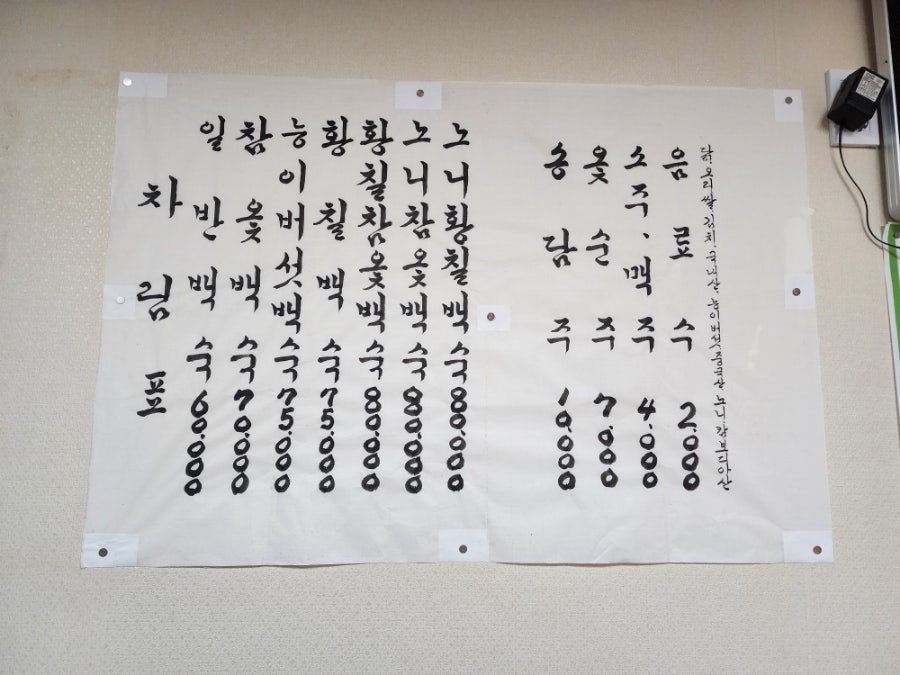 차림표
일반백숙 60.000
참옻백숙 70.000
능이버섯백숙 75.000
황칠백숙 75.000
황칠참옻백숙 80.000
노니참옻백숙 80.000
노니황칠백숙 80.000
송담주 10.000
옻순주 7.000
소주、맥주 4.000
음료수 2.000
닭.오리 쌀 김치.국내산. 능이버섯.중국산 노니.캄보디아산